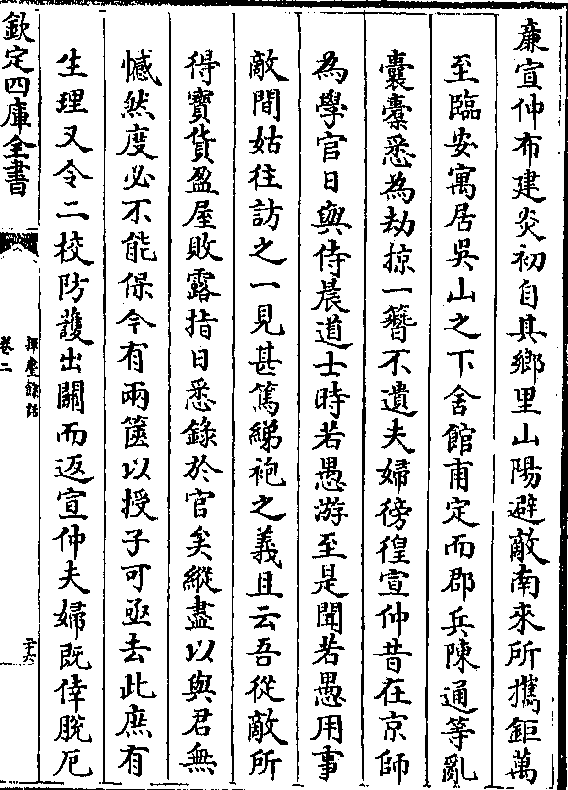 亷宣仲布建炎初自其鄉里山陽避敵南来所攜鉅萬
至臨安寓居吳山之下舍館甫定而郡兵陳通等亂
囊橐悉為劫掠一簪不遺夫婦徬徨宣仲昔在京師
為學官日與侍晨道士時若愚游至是聞若愚用事
敵間姑往訪之一見甚篤綈袍之義且云吾從敵所
得寶貨盈屋敗露指日悉録於官矣縱盡以與君無
憾然度必不能保今有兩篋以授子可亟去此庶有
生理又令二校防護出關而返宣仲夫婦既倖脫厄
欽定四庫全書
揮麈餘話
卷二
二十六